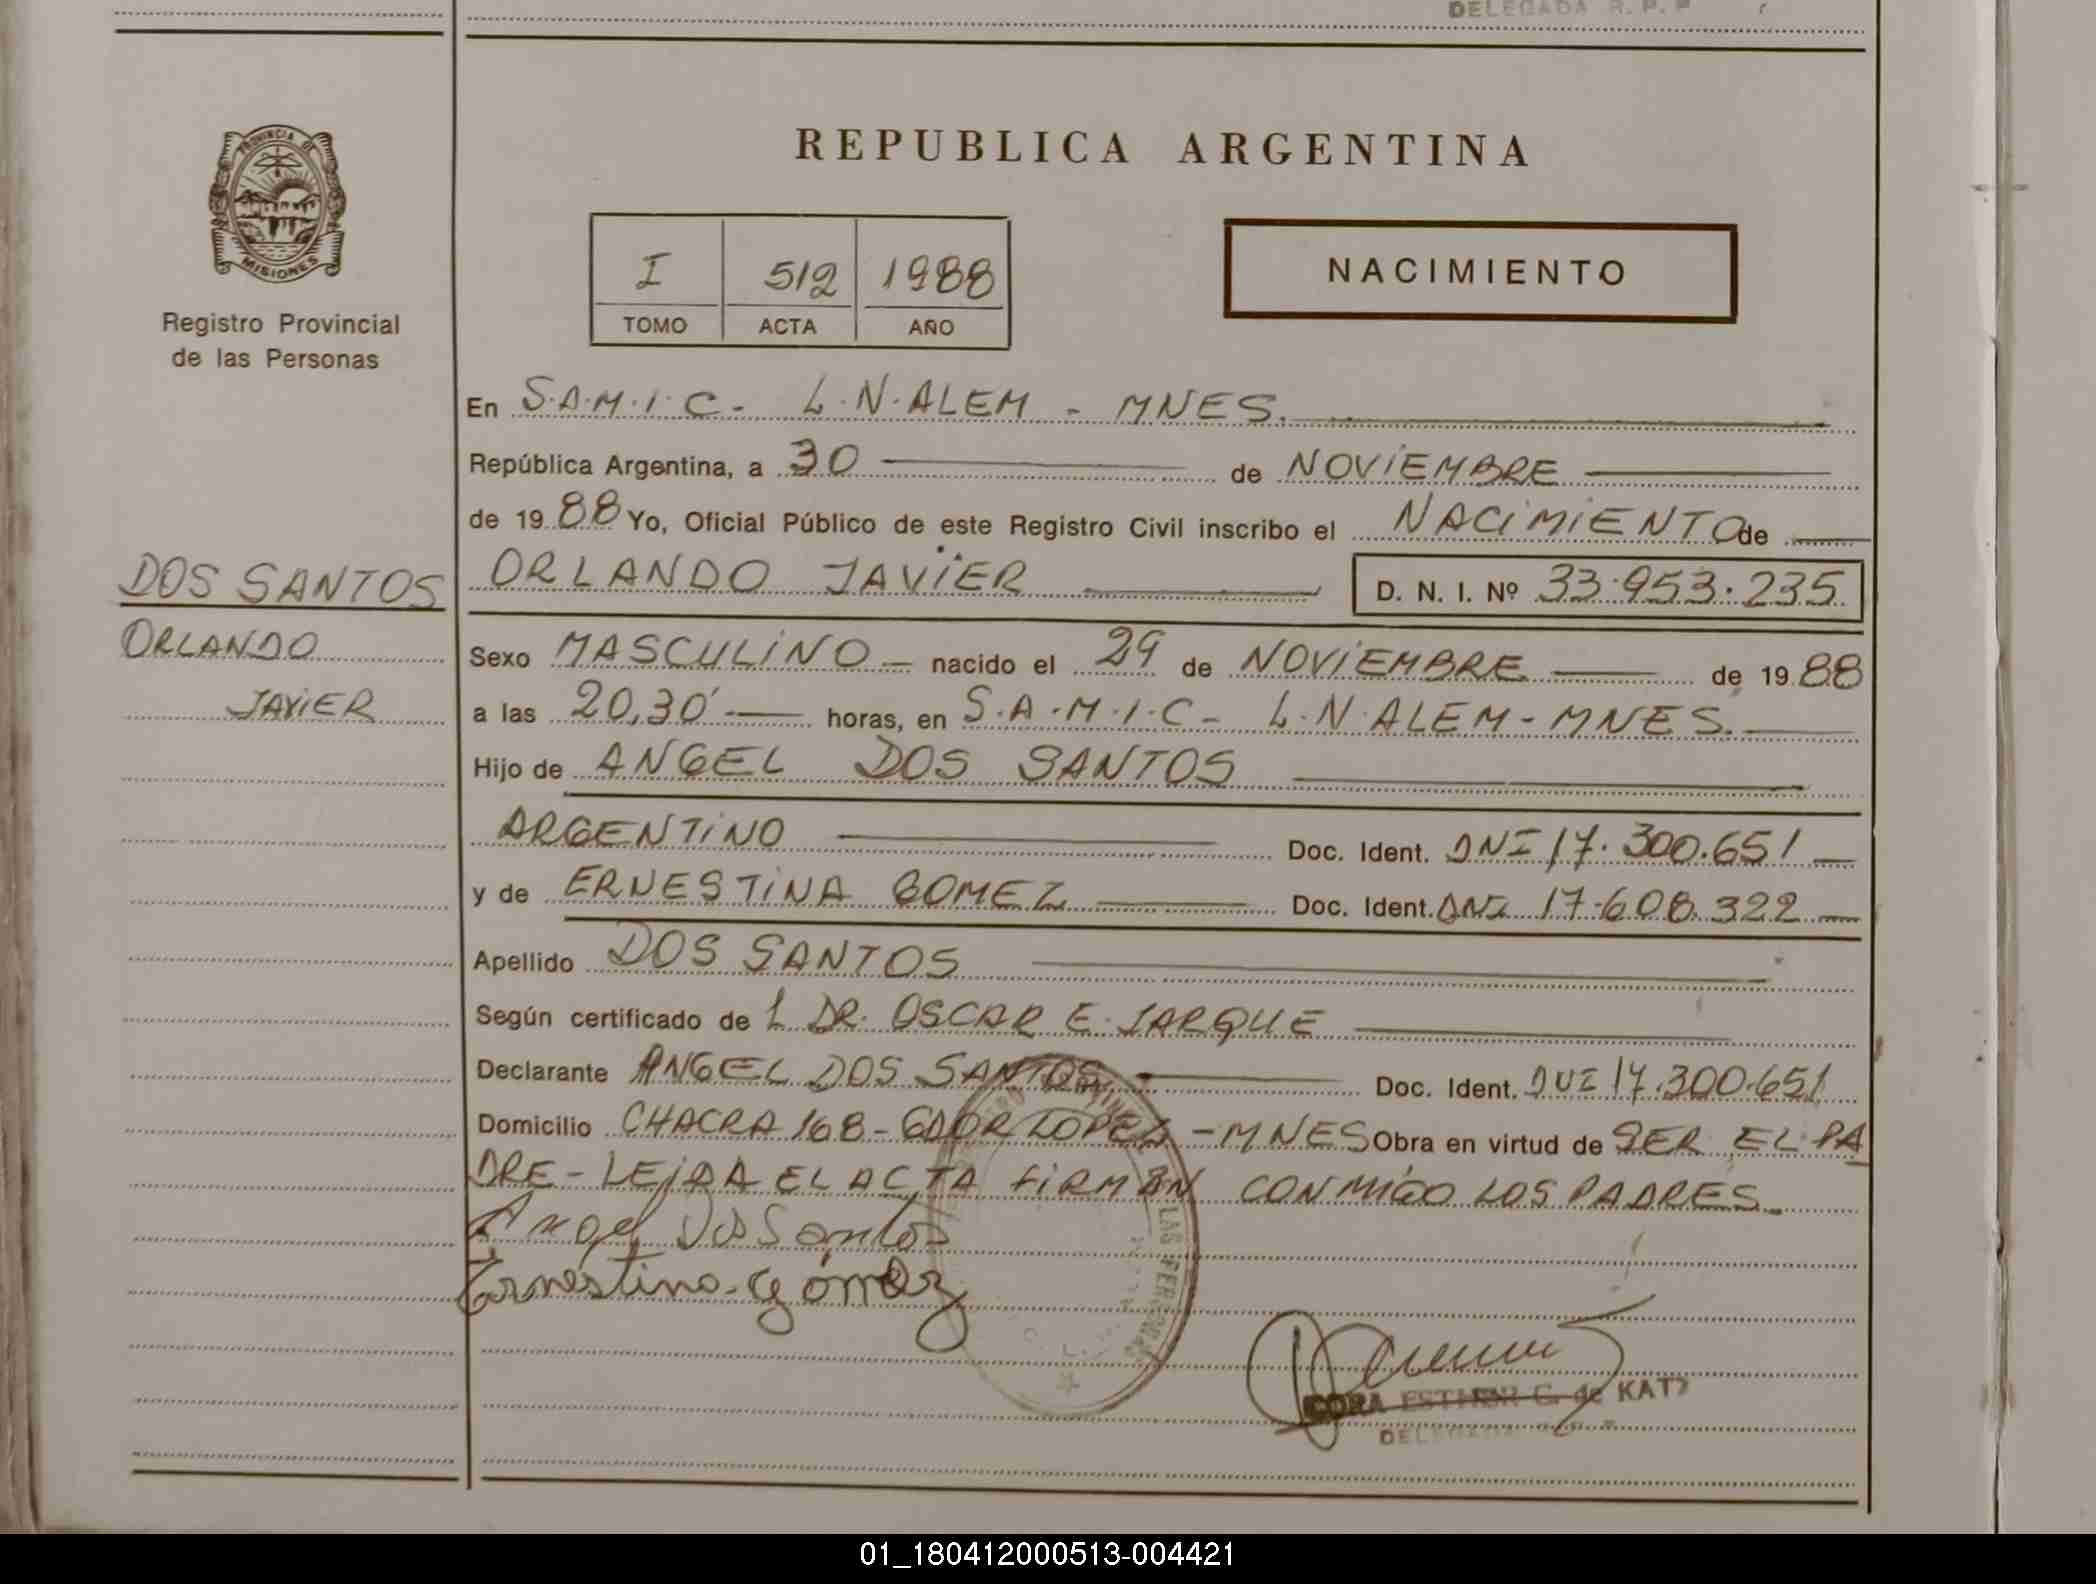 DELEGADA R. P. P
PROVINCIA DE
MISIONES
Registro Provincial
de las Personas
REPUBLICA ARGENTINA
I 512 1988
TOMO ACTA AÑO
NACIMIENTO
En S.A.M.I.C- L.N.ALEM - MNES.
República Argentina, a 30 de NOVIEMBRE
de 1988 Yo, Oficial Público de este Registro Civil inscribo el NACIMIENTO de
DOS SANTOS
ORLANDO
JAVIER
ORLANDO JAVIER D. N. I. Nº 33.953.235
Sexo MASCULINO - nacido el 29 de NOVIEMBRE de 1988
a las 20,30' horas, en S.A.M.I.C- L.N.ALEM-MNES.
Hijo de ANGEL DOS SANTOS
ARGENTINO Doc. Ident. DNI 17.300.651
y de ERNESTINA GOMEZ Doc. Ident. DNI 17.608.322
Apellido DOS SANTOS
Según certificado de L DR. OSCAR E. JARQUE
Declarante ANGEL DOS SANTOS Doc. Ident. DNI 17.300.651
Domicilio CHACRA 168- GDOR LOPEZ -MNES Obra en virtud de SER EL PA
DRE - LEIDA EL ACTA FIRMAN CONMIGO LOS PADRES.
Angel Dos Santos
Ernestina Gómez
LAS PERSONAS
CORA ESTHER G. de KATZ
DELEGADA
01_180412000513-004421